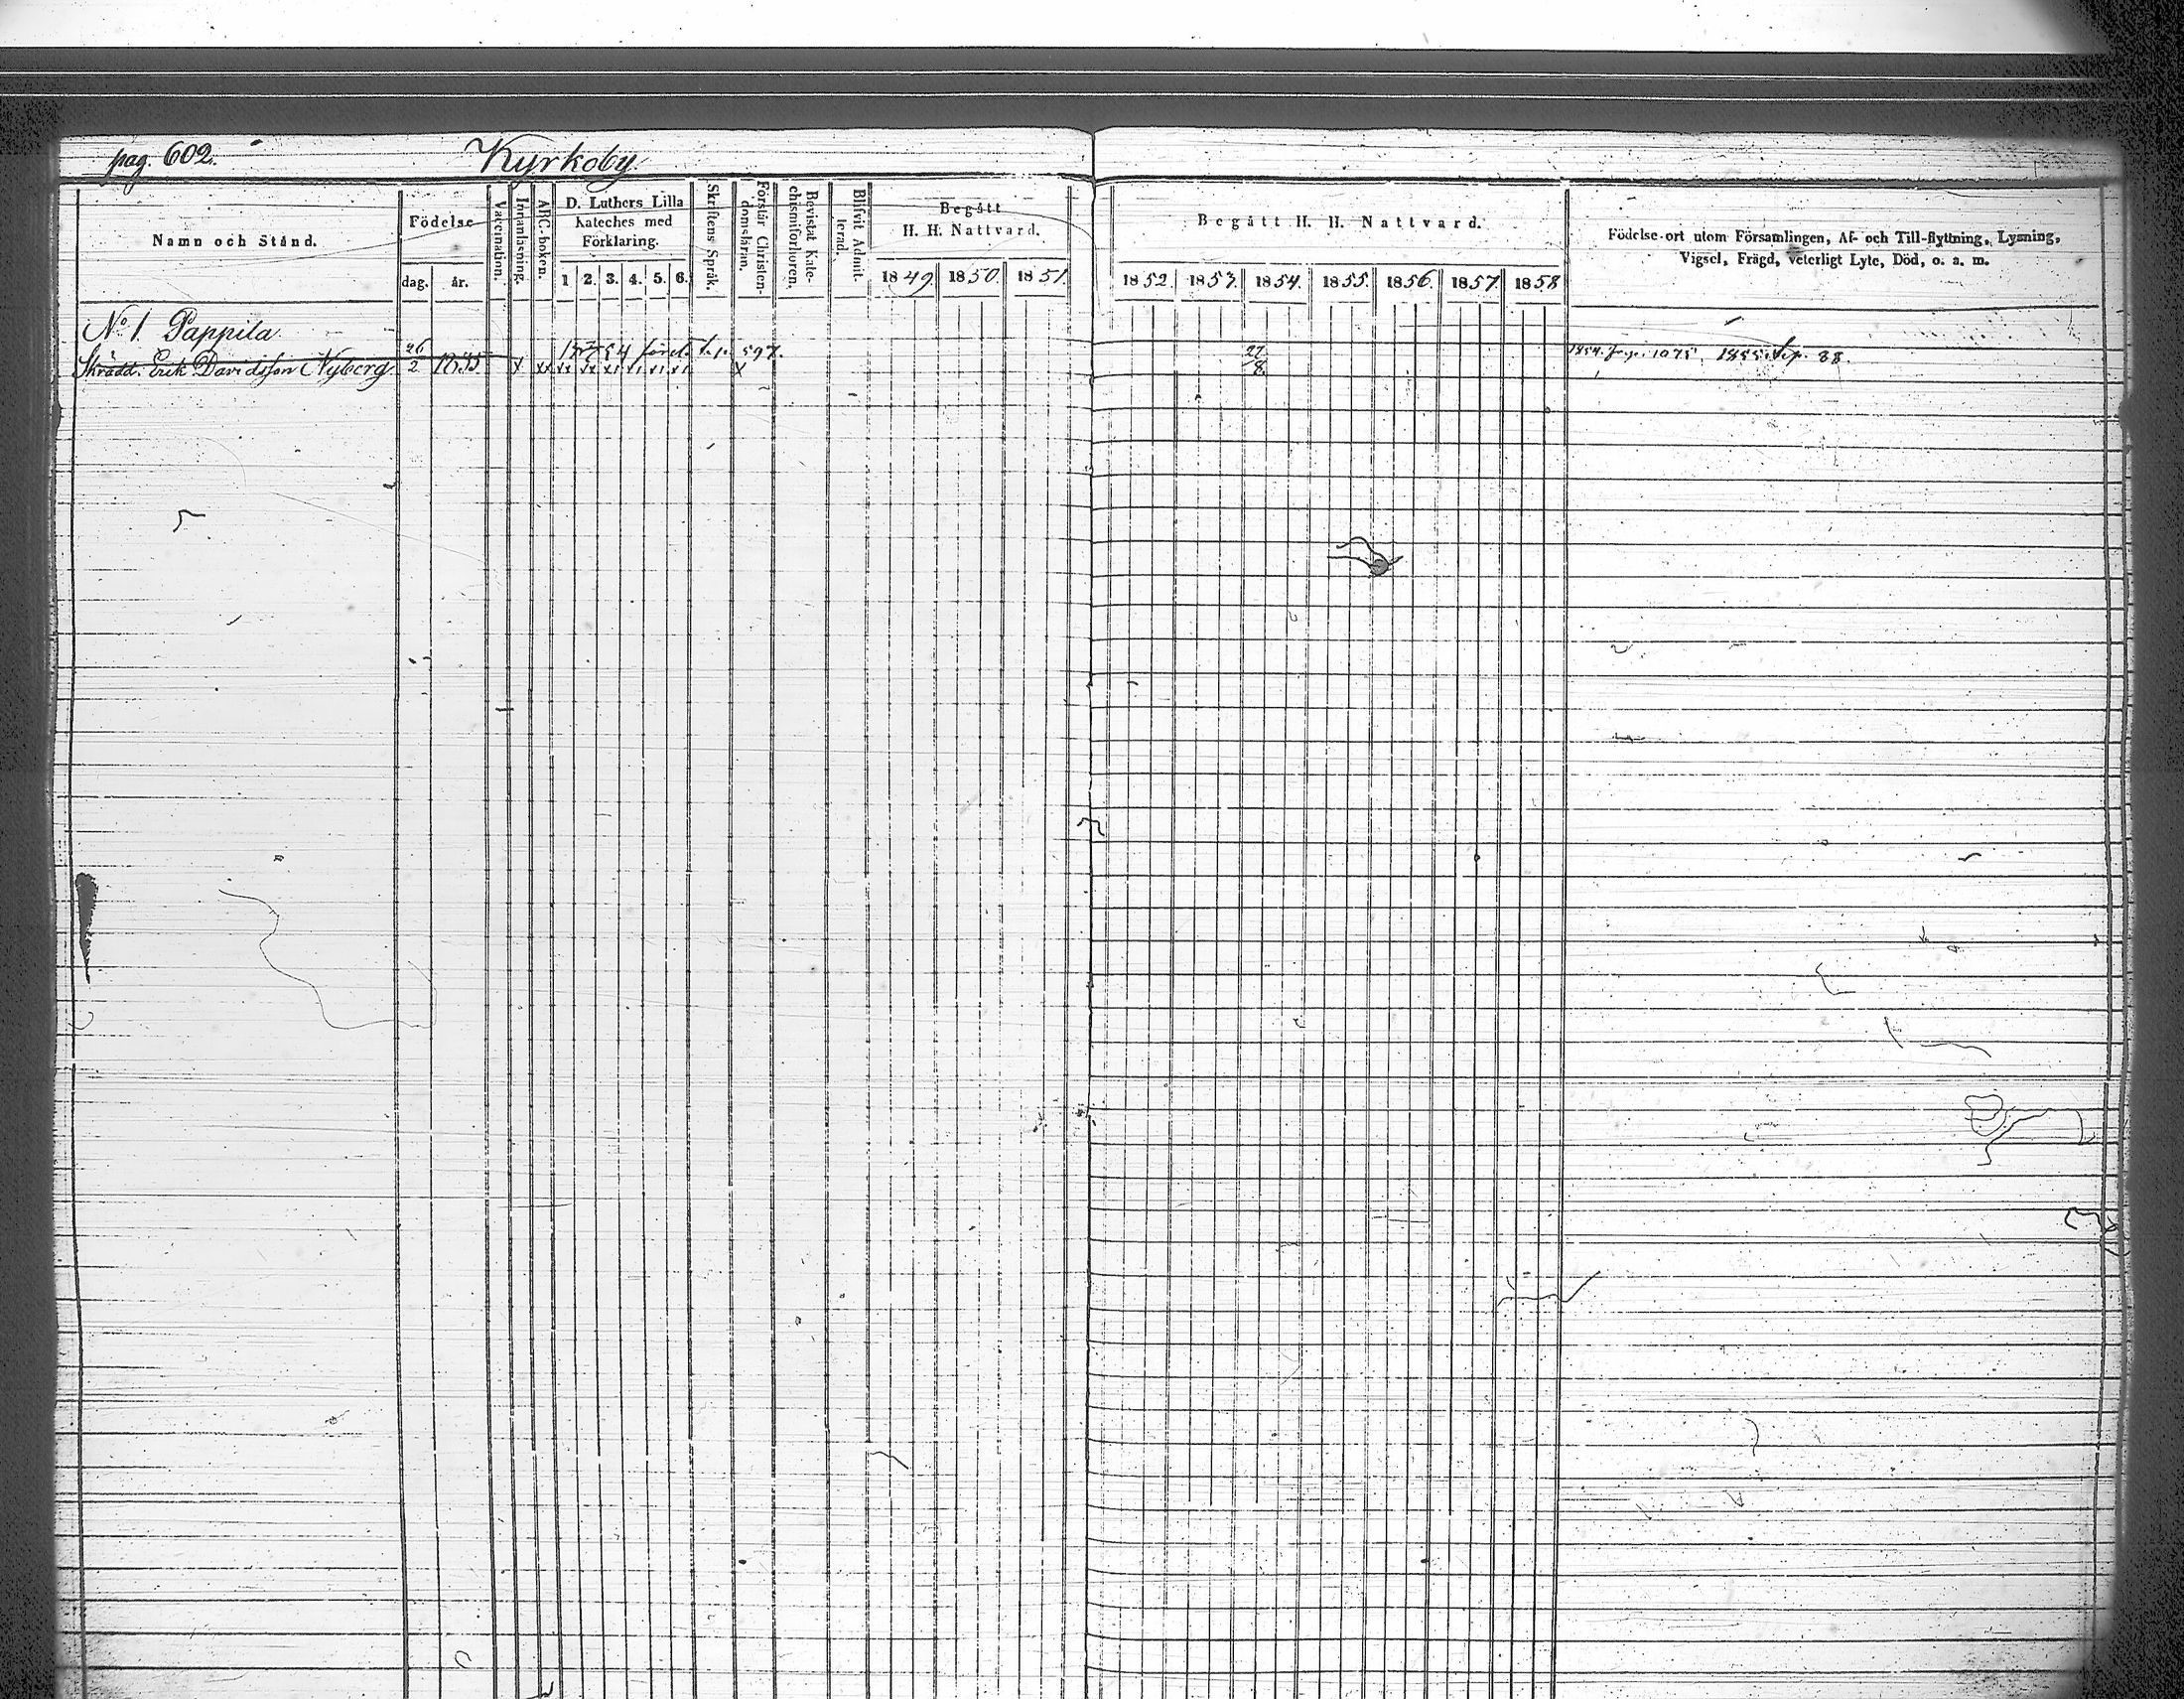 pag. 602. Kyrkoby.
Namn och Stånd.
Födelse
dag. år.
Vaccination.
Innanläsning.
ABC-boken.
D. Luthers Lilla
Kateches med
Förklaring.
1 2. 3. 4. 5. 6.
Skriftens Språk.
Förstår Christen-
domsläran.
Bevistat Kate-
chismiförhören.
Blifvit Admit-
terad.
Begått
H. H. Nattvard.
1849. 1850. 1851.
Begått H. H. Nattvard.
1852. 1853. 1854. 1855. 1856. 1857. 1858
Födelse-ort utom Församlingen, Af- och Till-flyttning, Lysning,
Vigsel, Frägd, veterligt Lyte, Död, o. a. m.
No 1. Pappila
Skrädd. Erik Davidsson Nyberg 26/2 1835 x xx xx xx x 27/8 1854 1075, 1855 88.